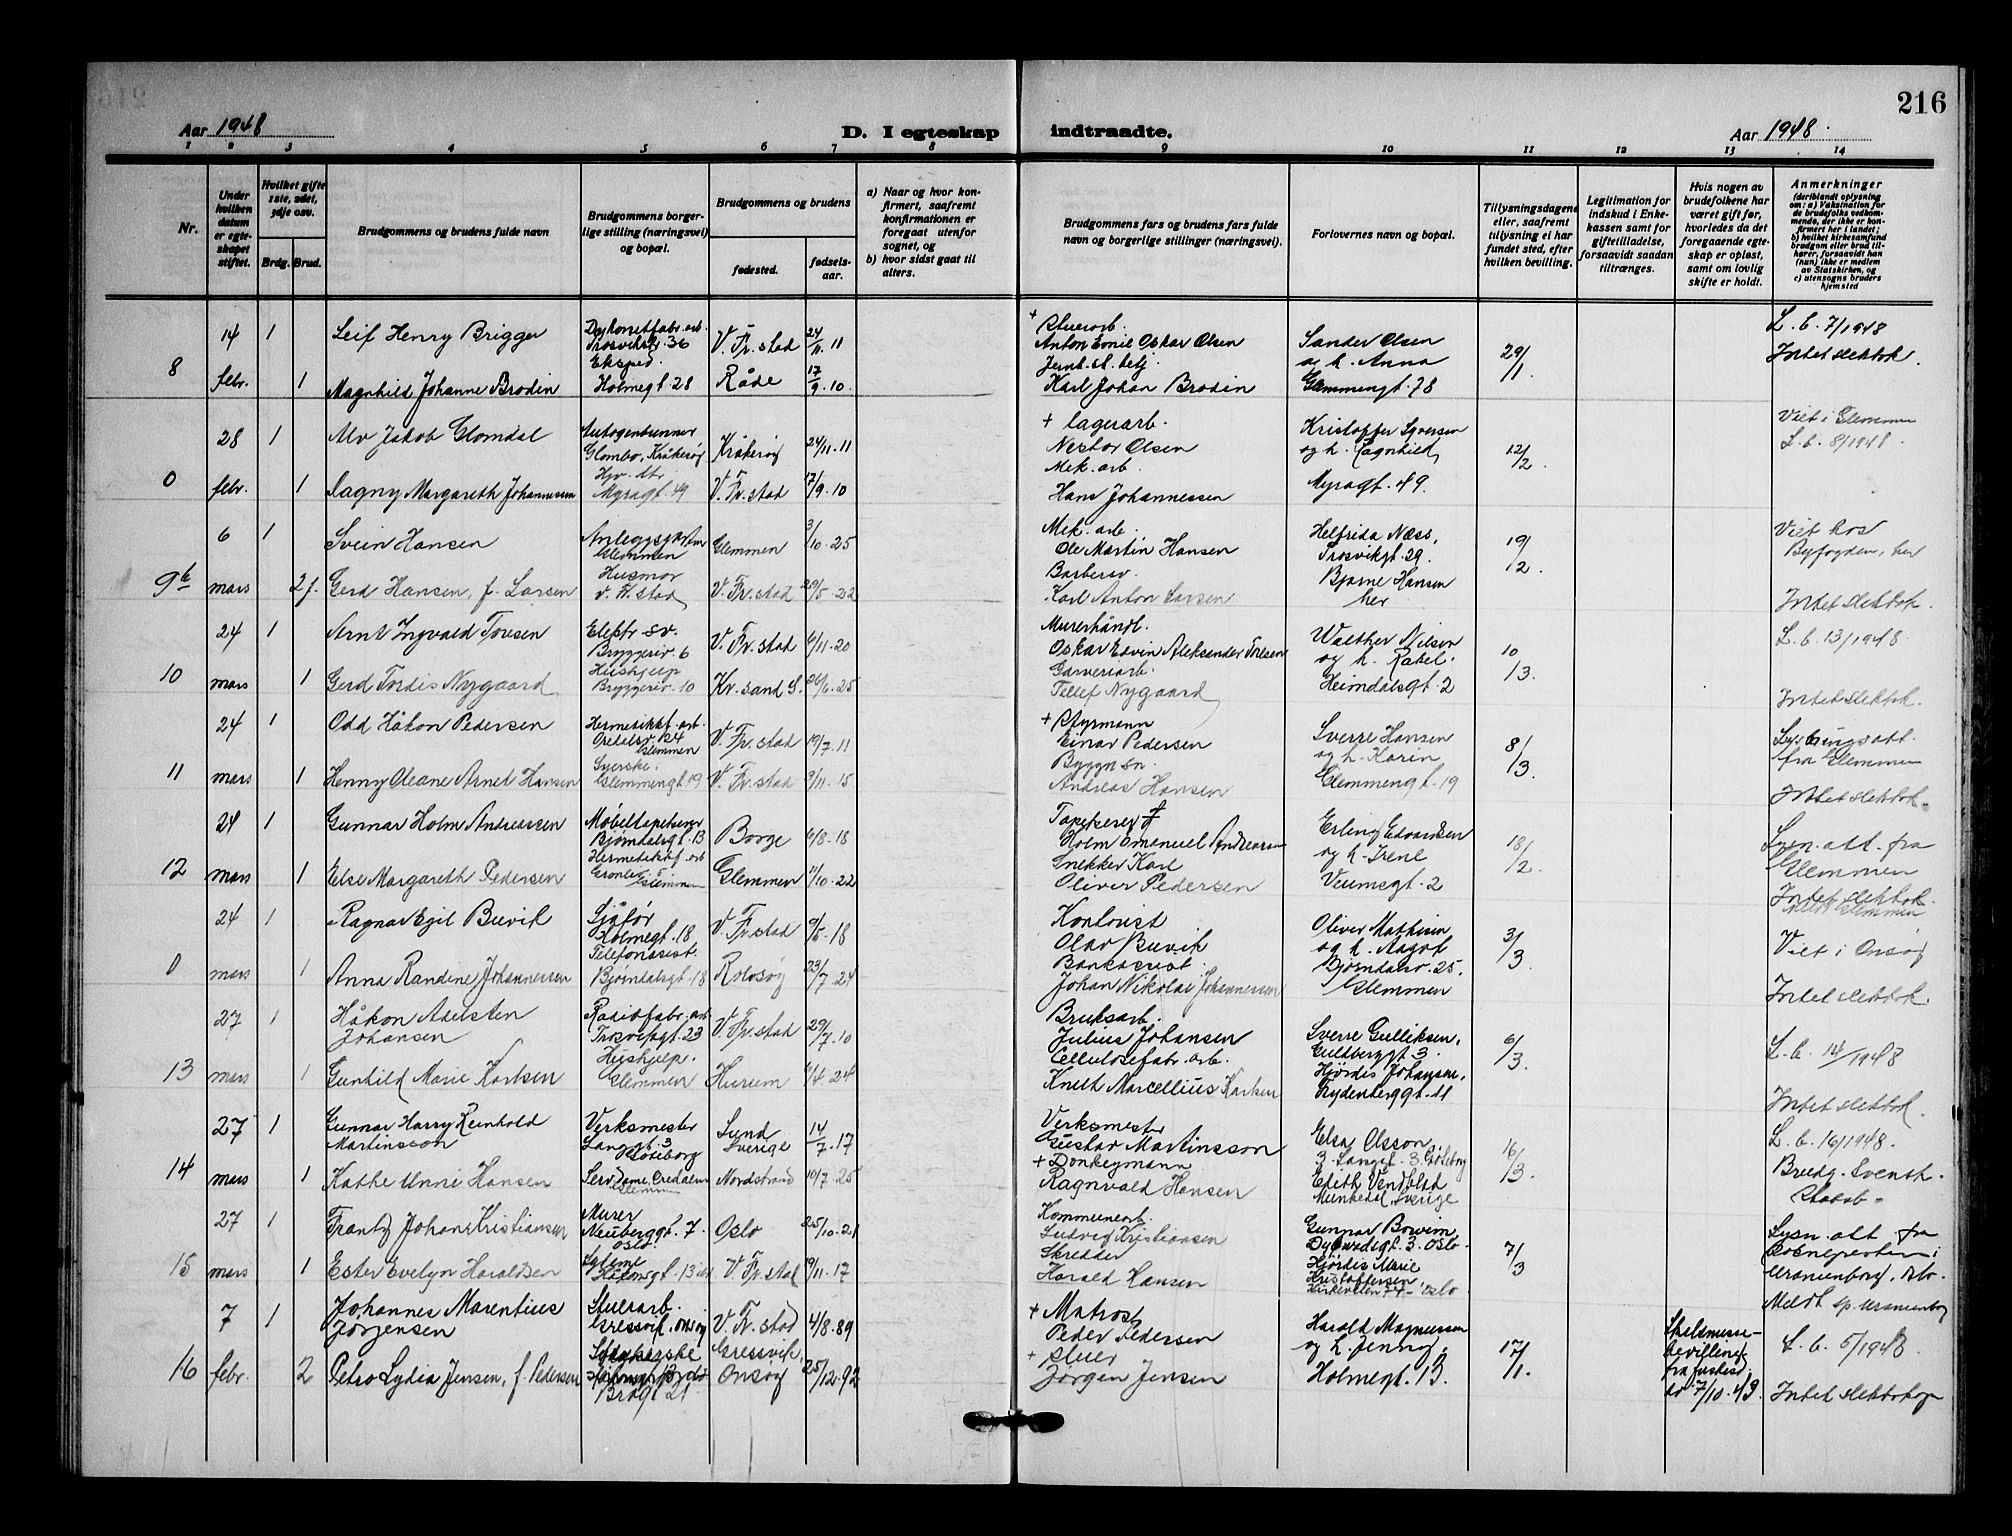 216
Aar 1948
D. I egteskap indtraadte.
Aar 1948.
1 2 3 4 5 6 7 8 9 10 11 12 13 14
Nr.
Under hvilken datum er egteskapet stiftet.
Hvilket gifte 1ste, 2det, 3dje osv.
Brdg. Brud.
Brudgommens og brudens fulde navn
Brudgommens borgerlige stilling (næringsvei) og bopæl.
Brudgommens og brudens
fødested.
fødselsaar.
a) Naar og hvor konfirmert, saafremt konfirmationen er foregaat utenfor sognet, og
b) hvor sidst gaat til alters.
Brudgommens fars og brudens fars fulde navn og borgerlige stillinger (næringsvei).
Forlovernes navn og bopæl.
Tillysningsdagene eller, saafremt tillysning ei har fundet sted, efter hvilken bevilling.
Legitimation for indskud i Enkekassen samt for giftetilladelse, forsaavidt saadan tiltrænges.
Hvis nogen av brudefolkene har været gift før, hvorledes da det foregaaende egteskap er opløst, samt om lovlig skifte er holdt.
Anmerkninger (deriblandt oplysning om: a) Vaksination for de brudefolks vedkommende, der ikke er konfirmert her i landet; b) hvilket kirkesamfund brudgom eller brud tilhører, forsaavidt han (hun) ikke er medlem av Statskirken, og c) utensogns bruders hjemsted
8
14 1 Leif Henry Brigger
Trosvikstr. 36
V. Fr.stad 24/11.11
+ Stuerarb.
Anton Emil Oskar Olsen
Sander Olsen
o. h. Anna
Glemmengt. 78
29/1
L. b. 7/1948
Intet slektsk.
febr. 1 Magnhild Johanne Brodin
Eksped.
Holmegt. 28
Råde 17/9.10
Jernb.st. betj.
Karl Johan Brodin
0
28 1 Alv Jakob Glomdal
Glombo, Kråkerøy
Kråkerøy 24/11.11
+ lagerarb.
Nestor Olsen
Kristoffer Syversen
og h. Ragnhild,
Myragt. 49.
12/2.
Viet i Glemmen
L. b. 8/1948.
febr. 1 Margareth Johannessen
Myragt. 49
V. Fr.stad 17/9.10
Mek. arb.
Hans Johannessen
9b
6 1 Svein Hansen
Glemmen
Glemmen 3/10.25
Mek. arb.
Ole Martin Hansen
Helfrida Næss,
Trosvikgt. 29.
Bjarne Hansen
her
19/2.
Viet hos
Byfogden, her
Intet slektsk.
mars 2f. Gerd Hansen, f. Larsen
Husmor
V. Fr.stad
V. Fr.stad 29/5.22
Karl Anton Larsen
10
24 1 Arnt Ingvald Torsen
Elektr. sv.
Bryggeriv. 6
V. Fr.stad 6/11.20
Murerhåndl.
Oskar Edvin Aleksander Torsen
Walther Nilsen
og h. Rakel.
Heimdalsgt. 2
10/3.
L. b. 13/1948.
Intet slektsk.
mars 1 Gerd Tordis Nygaard
Hushjelp
Bryggeriv. 10
Kr. sand S. 26/6.25
Garveriarb.
Tellef Nygaard
11
24 1 Odd Håkon Pedersen
Hermetikkf. arb.
Glemmen
V. Fr.stad 19/7.11
+ Styrmann
Einar Pedersen
Sverre Hansen
og h. Karin
Glemmengt. 19
8/3.
Lysningsatt.
fra Glemmen
Intet slektsk.
mars 1 Henny Oleane Arnet Hansen
Syerske.
Glemmengt. 19
V. Fr.stad 3/11.15
Byggn.sn.
Andreas Hansen
12
24 1 Gunnar Holm Andreassen
Møbeltapetserer
Bjørndalsgt. 13
Borge 6/8.18
Tapetserer +
Holm Emanuel Andreassen
Erling Edvardsen
og h. Irene
Veumsgt. 2
18/2.
Lysn. att. fra
Glemmen
Intet slektsk.
mars 1 Else Margareth Pedersen
Hermetikkf. arb
Glemmen
Glemmen 11/10.22
Snekker Karl
Oliver Pedersen
0
24 1 Ragnar Egil Buvik
Sjåfør
Holmegt. 18
V. Fr.stad 9/5.18
Kontorist
Olav Buvik
Oliver Mathisen
og h. Aagot
Bjørndalsv. 25.
Glemmen
3/3.
Viet i Onsøy
Intet slektsk.
mars 1 Anna Randine Johannessen
Telefonassist.
Bjørndalsgt. 18
Rolvsøy 23/7.24
Johan Nikolai Johannessen
13
27 1 Håkon Adelsten
Johansen
Radiofabr. arb
Trosvikgt. 23
V. Fr.stad 29/7.10
Bruksarb.
Julius Johansen
Sverre Gulliksen,
Guldberggt. 3.
Hjördis Johansen,
Rydenberggt. 11
6/3.
L. b. 14/1948
Intet slektsk.
mars 1 Gunhild Marie Karlsen
Hushjelp.
Glemmen
Hurum 6/4.24
Cellulosefabr. arb.
Knut Marcellius Karlsen
14
27 1 Gunnar Harry Reinhold
Martinsson
Verksmester
Langgt. 3
Göteborg
Lund
Sverige 14/7.17
Verksmester
Gustav Martinsson
Elsa Olsson
Göteborg
Edith Vendblad
Munkedal Sverige
16/3.
L. b. 16/1948.
Brudg. svensk.
Statsb.
mars 1 Kathe Unni Hansen
Glemmen
Nordstrand 10/7.25
+ Donkeymann
Ragnvald Hansen
15
27 1 Frantz Johan Kristiansen
Murer
Neuberggt. 7.
Oslo
Oslo 25/10.21
Kommunearb.
Ludvig Kristiansen
Gunnar Borvim
Oslo
Hjördis Marie
Kristoffersen,
Kirkeveien 74 - Oslo
7/3
Lysn. att. fra
Sognepresten i
Uranienborg, Oslo.
Meldt sp. Uranienborg
mars 1 Ester Evelyn Haraldsen
V. Fr.stad 19/11.17
Skredder
Harald Hansen
16
7 1 Johannes Marentius
Jørgensen
Stuerarb.
Gressvik, Onsøy
V. Fr.stad 4/8.89
+ Matros
Peder Pedersen
Harald Magnussen
og h. Jenny,
Holmegt. 13.
17/1.
Skilsmissebevilling
fra
7/10.43.
L. b. 5/1948.
Intet slektskap
febr. 2 Petra Lydia Jensen, f. Pedersen
Gressvik,
Onsøy 25/12.92
+ Stuer
Jørgen Jensen